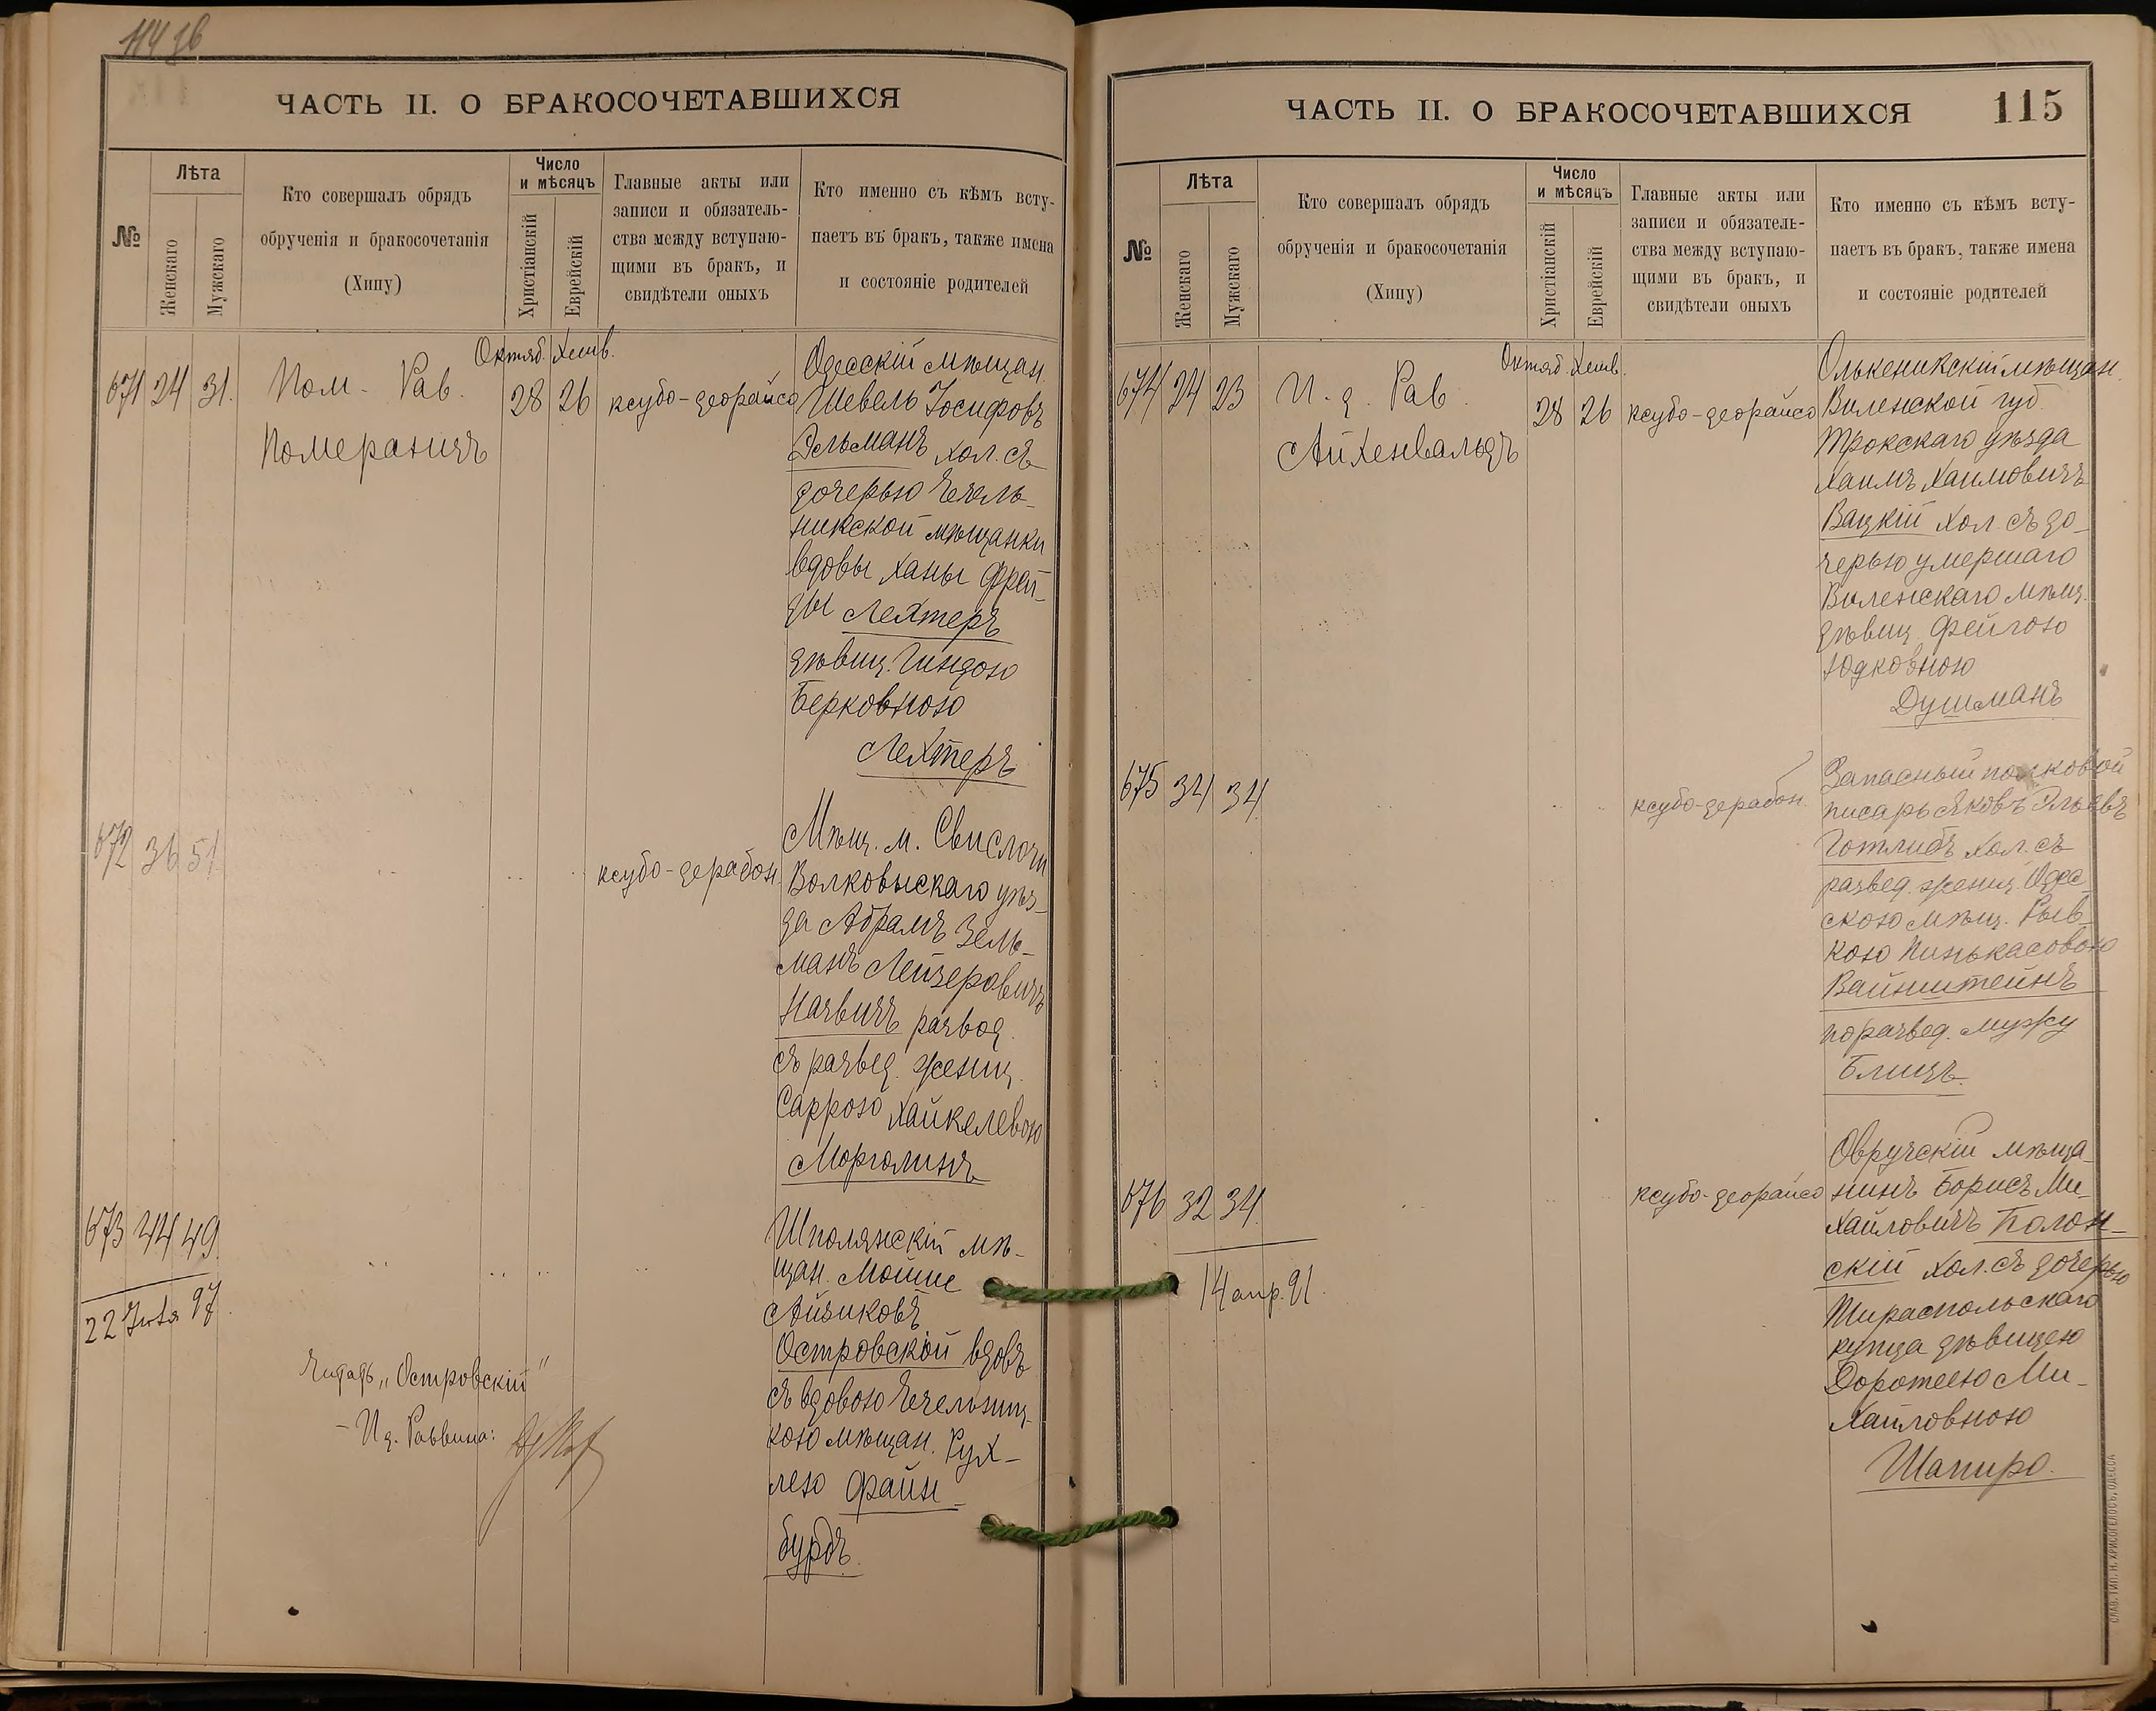 ЧАСТЬ II. О БРАКОСОЧЕТАВШИХСЯ
№
Лѣта
Женскаго
Мужскаго
Кто совершалъ обрядъ
обрученія и бракосочетанія
(Хипу)
Число
и мѣсяцъ
Христіанскій
Еврейскій
Главные акты или
записи и обязатель-
ства между вступаю-
щими въ бракъ, и
свидѣтели оныхъ
Кто именно съ кѣмъ всту-
паетъ въ бракъ, также имена
и состояніе родителей
Октяб. Хешв.
671 24 31. Пом. Рав. 28 26 ксубо-деорайсо
Померанцъ
Одесскій мѣщан.
Шевель Іосифовъ
Эльманъ хол. съ
дочерью Чечель-
никской мѣщанки
вдовы Ханы Фрей-
ды Лехтеръ
дѣвиц. Гиндою
Берковною
Лехтеръ
672 36 51 ксубо-дерабон.
Мѣщ. м. Свислочи
Волковыскаго уѣз-
да Абрамъ Зель-
манъ Лейзеровичъ
развод.
съ развед. женщ.
Саррою Хайкелевою
Морголинъ
673 44 49.
Шполянскій мѣ-
щан. Мошне
Айзиковъ
Островской вдовъ
съ вдовою Чечельниц-
кою мѣщан. Рух-
лею Файн-
бурдъ.
22 97.
Читать „Островскій"
- И д. Раввина:
ЧАСТЬ II. О БРАКОСОЧЕТАВШИХСЯ
115
№
Лѣта
Женскаго
Мужскаго
Кто совершалъ обрядъ
обрученія и бракосочетанія
(Хипу)
Число
и мѣсяцъ
Христіанскій
Еврейскій
Главные акты или
записи и обязатель-
ства между вступаю-
щими въ бракъ, и
свидѣтели оныхъ
Кто именно съ кѣмъ всту-
паетъ въ бракъ, также имена
и состояніе родителей
Октяб. Хешв.
674 24 23 И. д. Рав. 28 26 ксубо-деорайсо
Айхенвальдъ
Олькеникскій мѣщан.
Виленской губ.
Трокскаго уѣзда
Хаимъ Хаимовичъ
Вацкій хол. съ до-
черью умершаго
Виленскаго мѣщ.
дѣвиц. Фейгою
Юдковною
Душманъ
675 34 34. ксубо-дерабон.
Запасный полковой
писарь Яковъ Эльевъ
Готлибъ хол. съ
развед. женщ. Одес-
скою мѣщ. Рыв-
кою Пинькасовою
Вайнштейнъ
по развед. мужу
Блицъ.
676 32 34. ксубо-деорайсо
Овручскій мѣща-
нинъ Борисъ Ми-
хайловичъ Полон-
скій хол. съ дочерью
Тираспольскаго
купца дѣвицею
Доротеею Ми-
хайловною
Шапиро.
14 апр. 91.
СЛАВ. ТИП. Н. ХРИСОГЕЛОСЪ, ОДЕССА